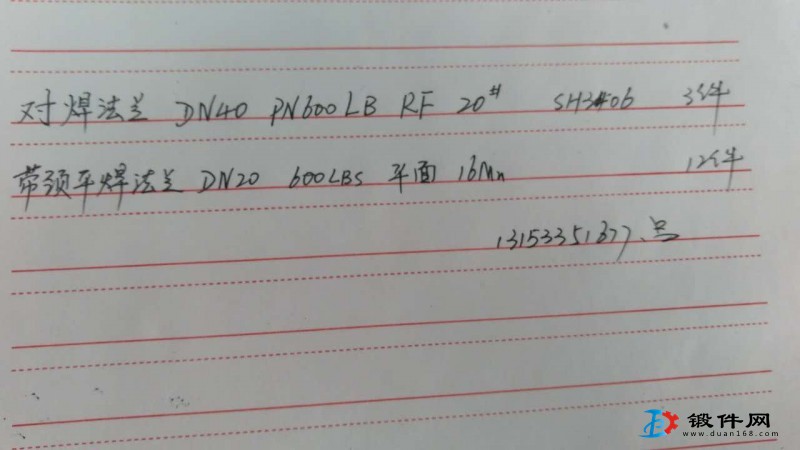 对焊法兰 DN40 PN600LB RF 20# SH3406 3件
带颈平焊法兰 DN20 600LBS 平面 16Mn 12件
锻件网
www.duan168.com